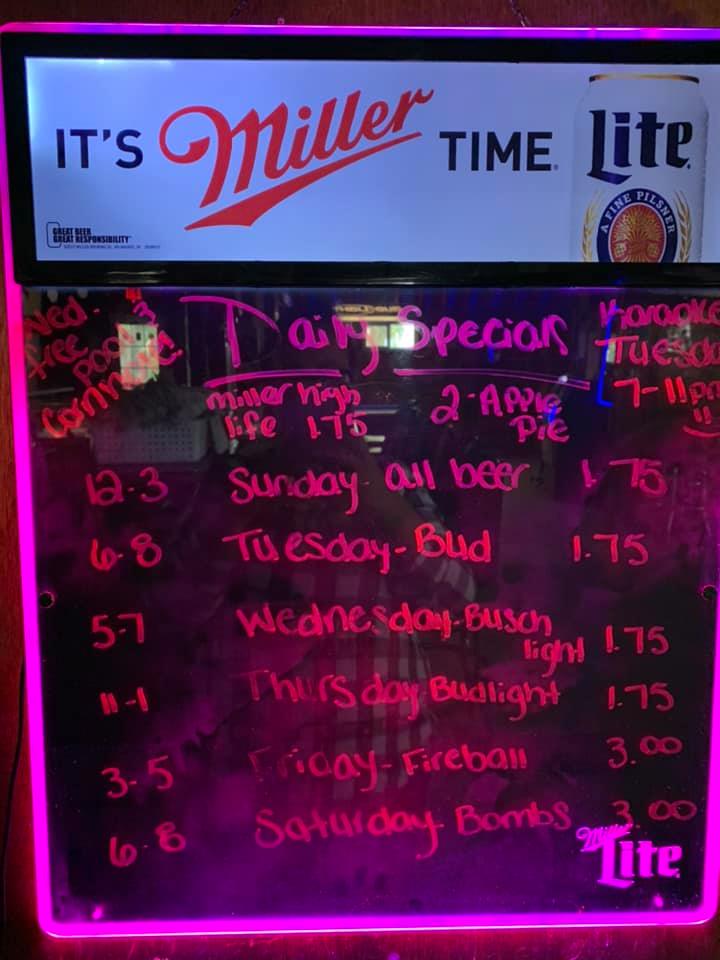 IT'S Miller TIME.
Lite
A FINE PILSNER
GREAT BEER
GREAT RESPONSIBILITY
Daily Specials
Wed.
free
pool 3
Cornhole
Karaoke
Tuesda
7-11pm
miller high
life 1.75
2-Apple
Pie
12-3 Sunday- all beer 1.75
6-8 Tuesday-Bud 1.75
5-7 Wednesday-Busch
light 1.75
11-1 Thursday-Budlight 1.75
3-5 Friday-Fireball 3.00
6-8 Saturday-Bombs 3.00
Miller
Lite